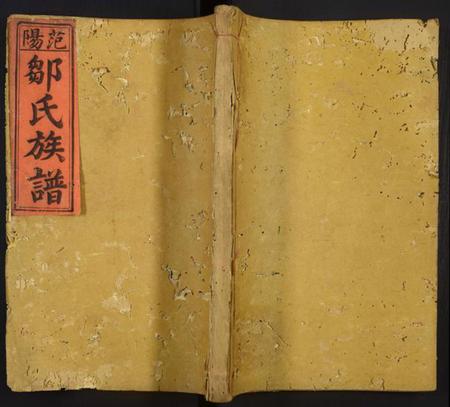 范陽
鄒氏族譜